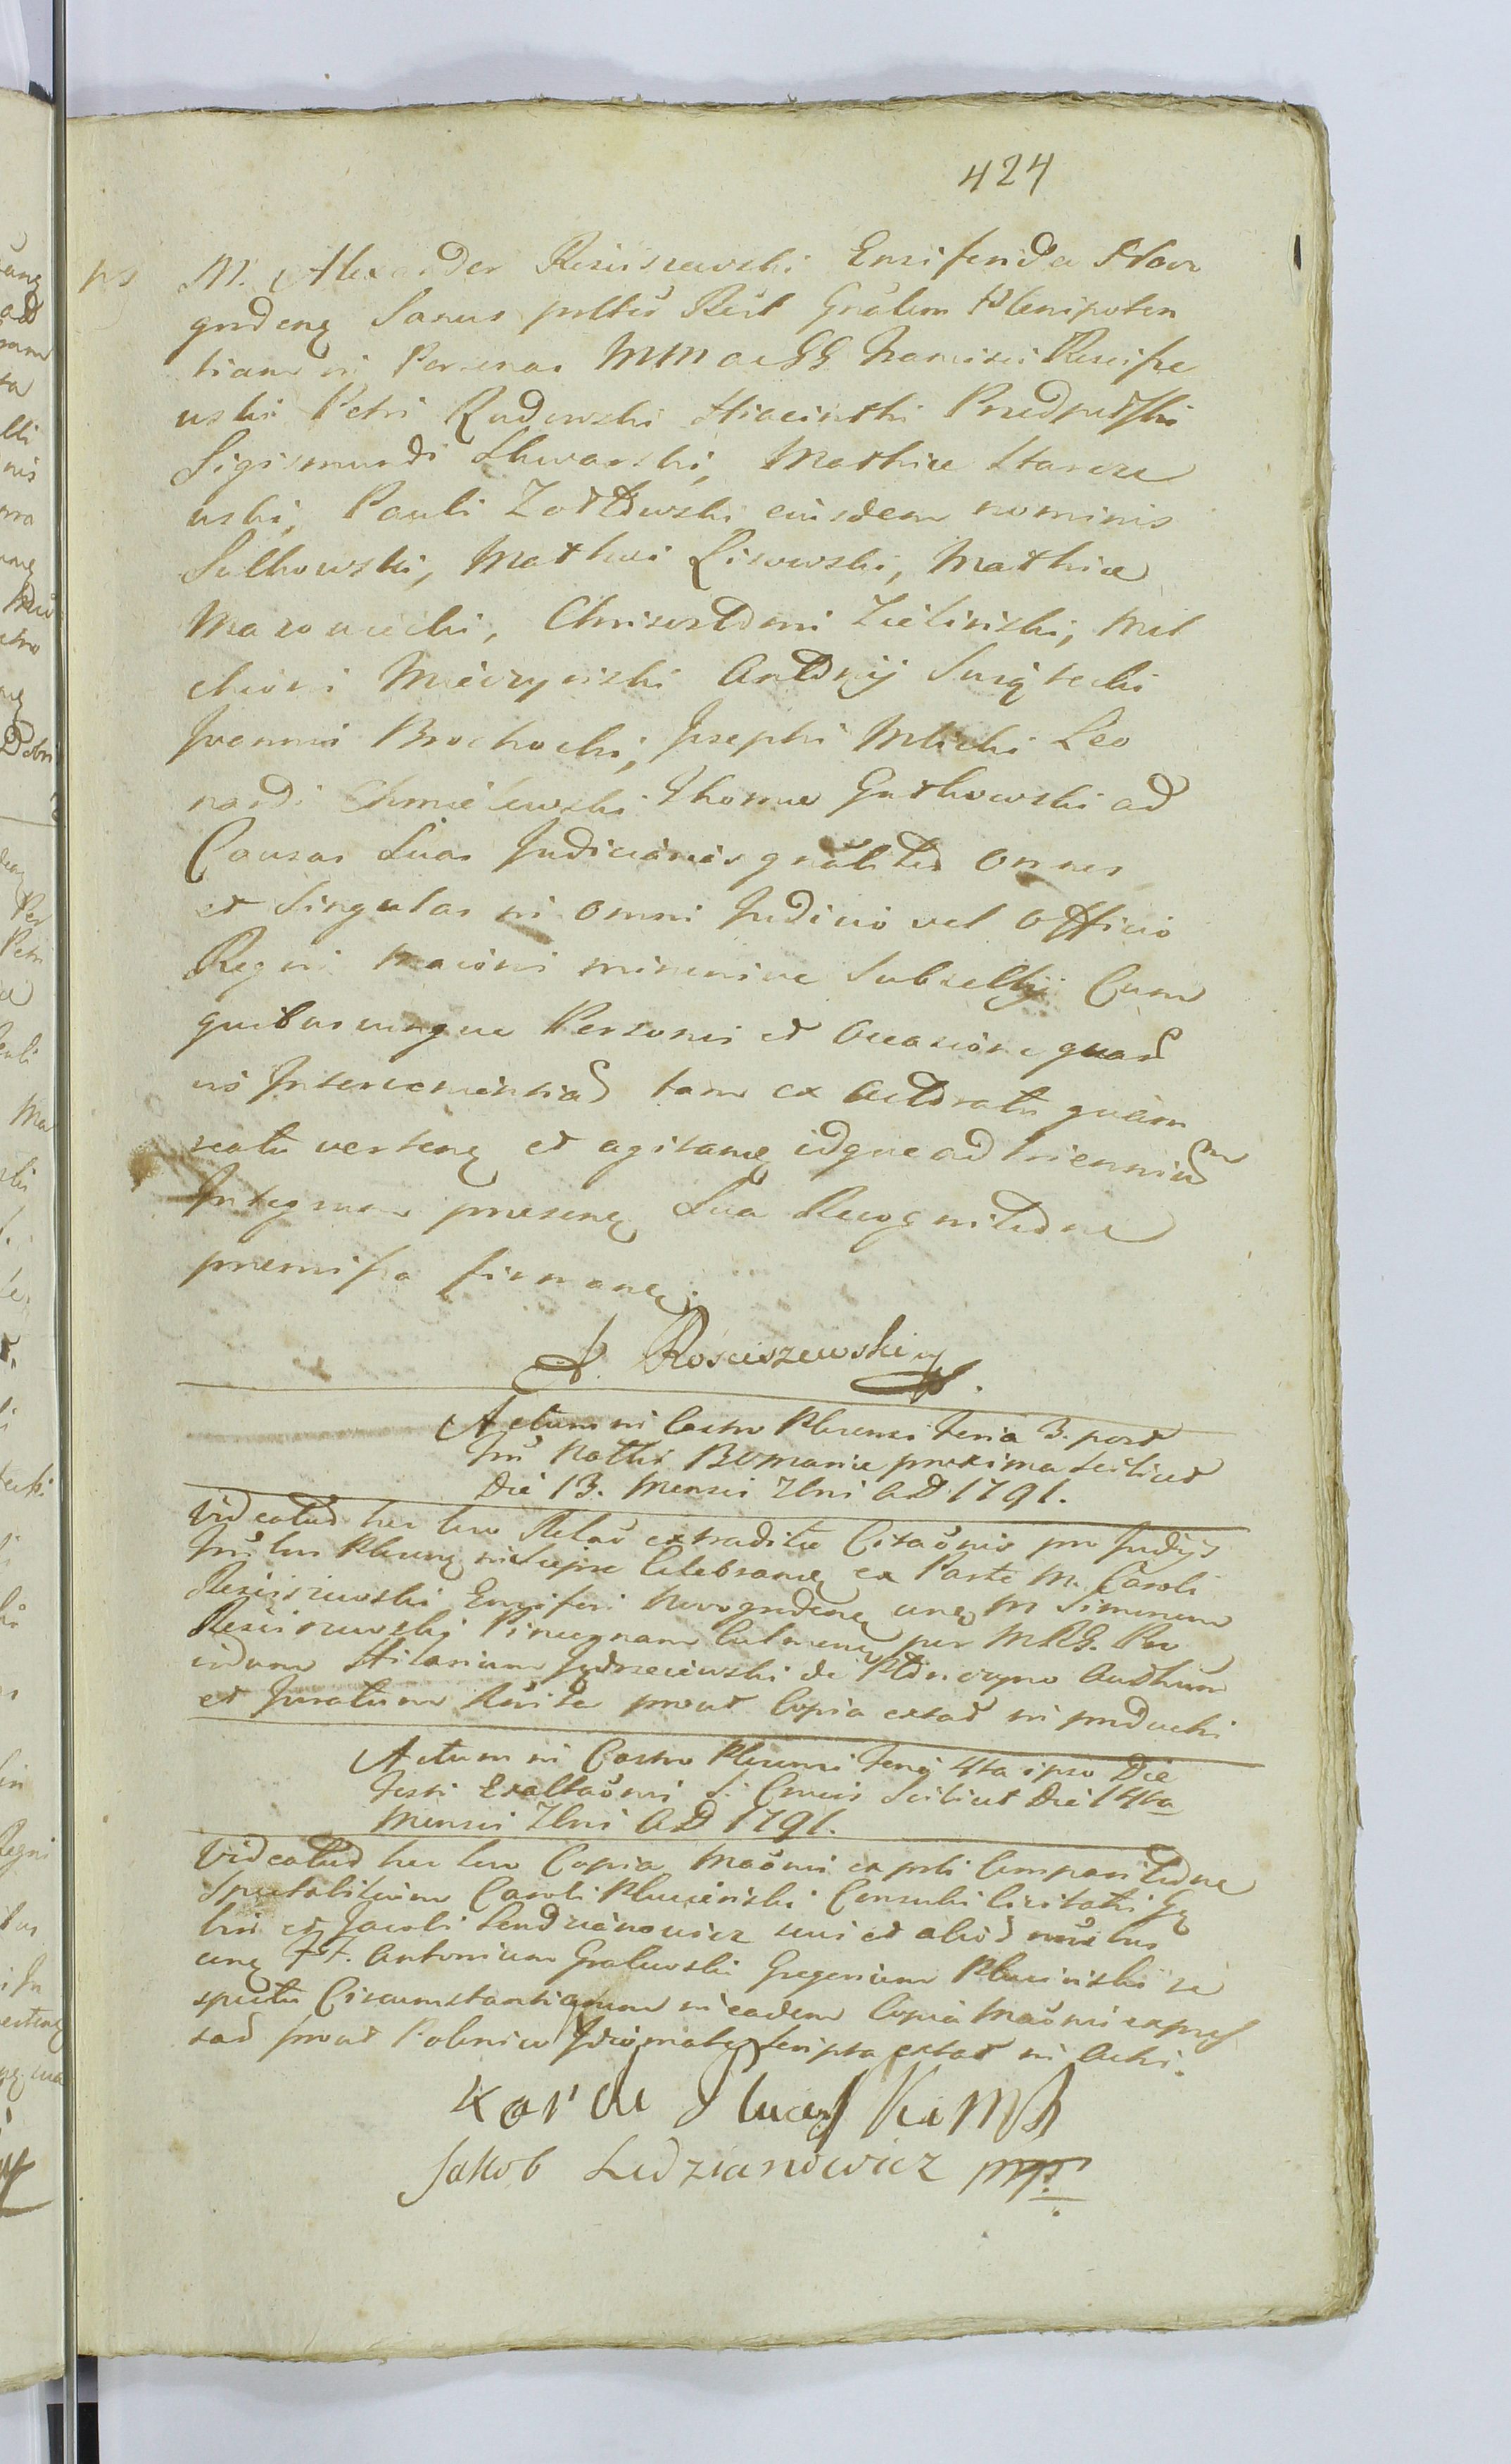 424
ps M. Alexander Rościszewski Ensiferida Nowo
grodens Sanus prstis Rect Gnalem Plenipoten
tiam in Personas MM ac GG Francisci Roscisze
wski Petri Rudowski Hiacinthi Przedpełski
Sigismundi Skwarski, Mathiae Starcze
wski, Pauli Zołtowski ejusdem nominis
Sulkowski, Mathei Lisowski, Mathiae
Mazowiecki, Chrisostomi Zieliński, Mel
chiori Mieczyński Antonij Świątecki
Joannis Brochocki, Josephi Mlicki Leo
nardi Chmielewski Thomae Gutkowski ad
Causas Suas Judiciarias gnaliter omnes
et Singulas in omni Judicio vel Officio
Regni maioris minorisve Subsellij Cum
quibusvisque Personis et Occasione quar
vis Intervenientia tam ex Actoratu quam
reatu verten et agitan idque ad triennium
Integrum presens Sua Recognitione
premissa firmans.
A Rościszewski mp.
Actum in Castro Plocensi Feria 3. post
Fm Nattis B V Mariae proxima scilicet
Die 13. Mensis 7bris A D 1791.
Videatur hec loco Relao extraditae Citaonis pro Judijs
Plocens Celebrans ex Parte M. Caroli
Rościszewski Ensiferi Nowogrodens cung M Simonem
Rościszewski Pincernam Culmens per M R G. Pro
vidum Hilarium Jędrzeiewski de Authum
et Juratum prout Copia extat in producti
Actum in Castro Plocensi Feria 4ta ipso Die
Festi Exaltaonis S. Crucis Scilicet Die 14ta
Mensis 7bris A D 1791.
Videatur hec loco Copia ex psli Comparitione
Spectabilium Caroli Pluciński Consulis Civitatis
et Jacobi Lendzianowicz sui et alior
cung FF. Antonium Gralewski Gregorium Pluciński re
spectu Circumstantiarum in eadem Copia expres
sar prout Polonico Idiomate scripta extat in Actis.
Karol Pluciński MP
Jakob Ledzianowicz mp.